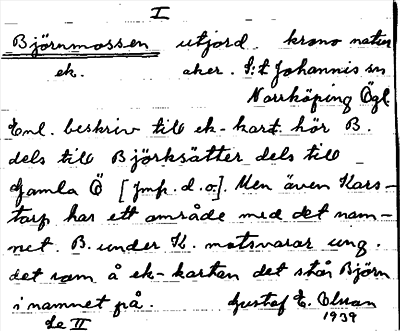 I
Björnmossen utjord krono natur
ek. aker. S:t Johannis sn
Norrköping Ögl.
Enl. beskriv till ek-kart. hör B.
dels till Björksätter dels till
Gamla Ö [jmf. d.o.]. Men även Kars-
torp har ett område med det nam-
net. B. under K. motsvarar ung.
det som å ek-kartan det står Björn
i namnet på. Gustaf E. Olsson
Se II 1939